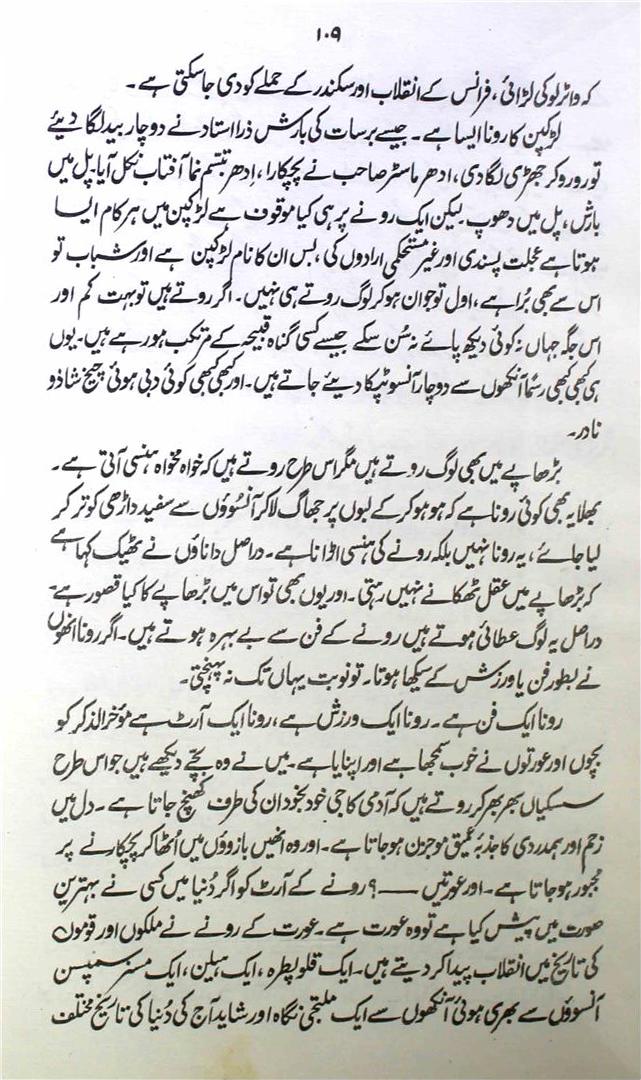 ۱۰۹
کہ واٹرلو کی لڑائی، فرانس کے انقلاب اور سکندر کے حملے کو دی جا سکتی ہے۔
لڑکپن کا رونا ایسا ہے۔ جیسے برسات کی بارش ذرا استاد نے دو چار بید لگا دیئے
تو رو رو کر جھڑی لگا دی، ادھر ماسٹر صاحب نے پچکارا، اِدھر تبسم نما آفتاب نکل آیا۔ پل میں
بارش، پل میں دھوپ۔ لیکن ایک رونے پر ہی کیا موقوف ہے لڑکپن میں ہر کام ایسا
ہوتا ہے عجلت پسندی اور غیر مستحکمی ارادوں کی، بس ان کا نام لڑکپن ہے اور شباب تو
اس سے بھی بُرا ہے، اول تو جوان ہو کر لوگ روتے ہی نہیں۔ اگر روتے ہیں تو بہت کم اور
اس جگہ جہاں نہ کوئی دیکھ پائے نہ سُن سکے جیسے کسی گناہ قبیحہ کے مرتکب ہو رہے ہیں۔ یوں
ہی کبھی کبھی رسماً آنکھوں سے دو چار آنسو ٹپکا دیئے جاتے ہیں۔ اور کبھی کبھی کوئی دبی ہوئی چیخ شاذو
نادر۔
بڑھاپے میں بھی لوگ روتے ہیں مگر اس طرح روتے ہیں کہ خواہ مخواہ ہنسی آتی ہے۔
بھلا یہ بھی کوئی رونا ہے کہ ہو ہو کر کے لبوں پر جھاگ لا کر آنسوؤں سے سفید داڑھی کو تر کر
لیا جائے، یہ رونا نہیں بلکہ رونے کی ہنسی اڑانا ہے۔ دراصل داناؤں نے ٹھیک کہا ہے
کہ بڑھاپے میں عقل ٹھکانے نہیں رہتی۔ اور یوں بھی تو اس میں بڑھاپے کا کیا قصور ہے۔
دراصل یہ لوگ عطائی ہوتے ہیں رونے کے فن سے بے بہرہ ہوتے ہیں۔ اگر رونا انھوں
نے بطور فن یا ورزش کے سیکھا ہوتا۔ تو نوبت یہاں تک نہ پہنچتی۔
رونا ایک فن ہے۔ رونا ایک ورزش ہے، رونا ایک آرٹ ہے مؤخر الذکر کو
بچوں اور عورتوں نے خوب سمجھا ہے اور اپنایا ہے۔ میں نے وہ بچے دیکھے ہیں جو اس طرح
سسکیاں بھر بھر کر روتے ہیں کہ آدمی کا جی خود بخود ان کی طرف کھنچ جاتا ہے۔ دل میں
رحم اور ہمدردی کا جذبہ عمیق موجزن ہو جاتا ہے۔ اور وہ انھیں بازوؤں میں اُٹھا کر پچکارنے پر
مجبور ہو جاتا ہے۔ اور عورتیں ——؟ رونے کے آرٹ کو اگر دُنیا میں کسی نے بہترین
صورت میں پیش کیا ہے تو وہ عورت ہے۔ عورت کے رونے نے ملکوں اور قوموں
کی تاریخ میں انقلاب پیدا کر دیئے ہیں۔ ایک قلوپطرہ، ایک ہیلن، ایک مسز سمپسن
آنسوؤں سے بھری ہوئی آنکھوں سے ایک ملتجی نگاہ اور شاید آج کی دُنیا کی تاریخ مختلف